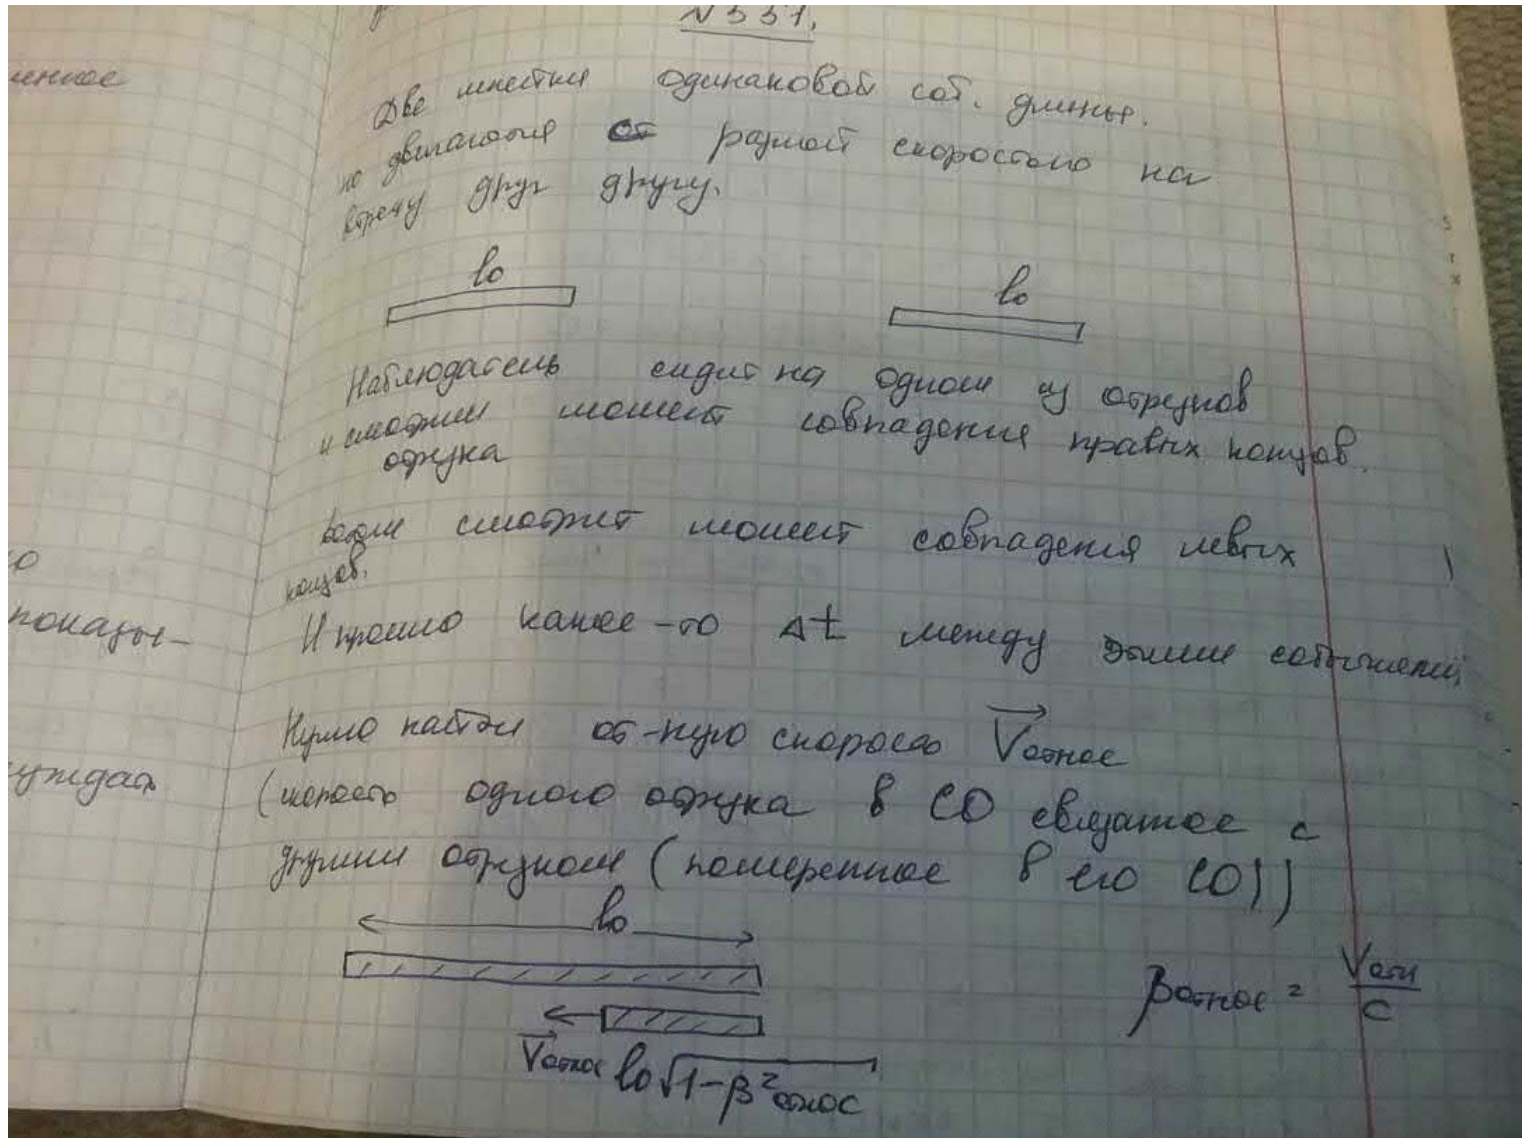 N 351.
Две одинаковой соб. длины.
но двигаются с разной скоростью на
встречу друг другу.
l₀ l₀
Наблюдатель сидит на одном из отрезков
и смотрит момент совпадения правых концов.
отрезка
смотрит момент совпадения левых
концов.
И прошло какое-то Δt между этими событиями
Нужно найти от-ную скорость V⃗относ
(скорость одного отрезка в СО связанное с
другим отрезком (померенное в его СО))
l₀
βотнос = Vотн/c
V⃗относ l₀√1-β²относ
енное
о
показы-
уждать